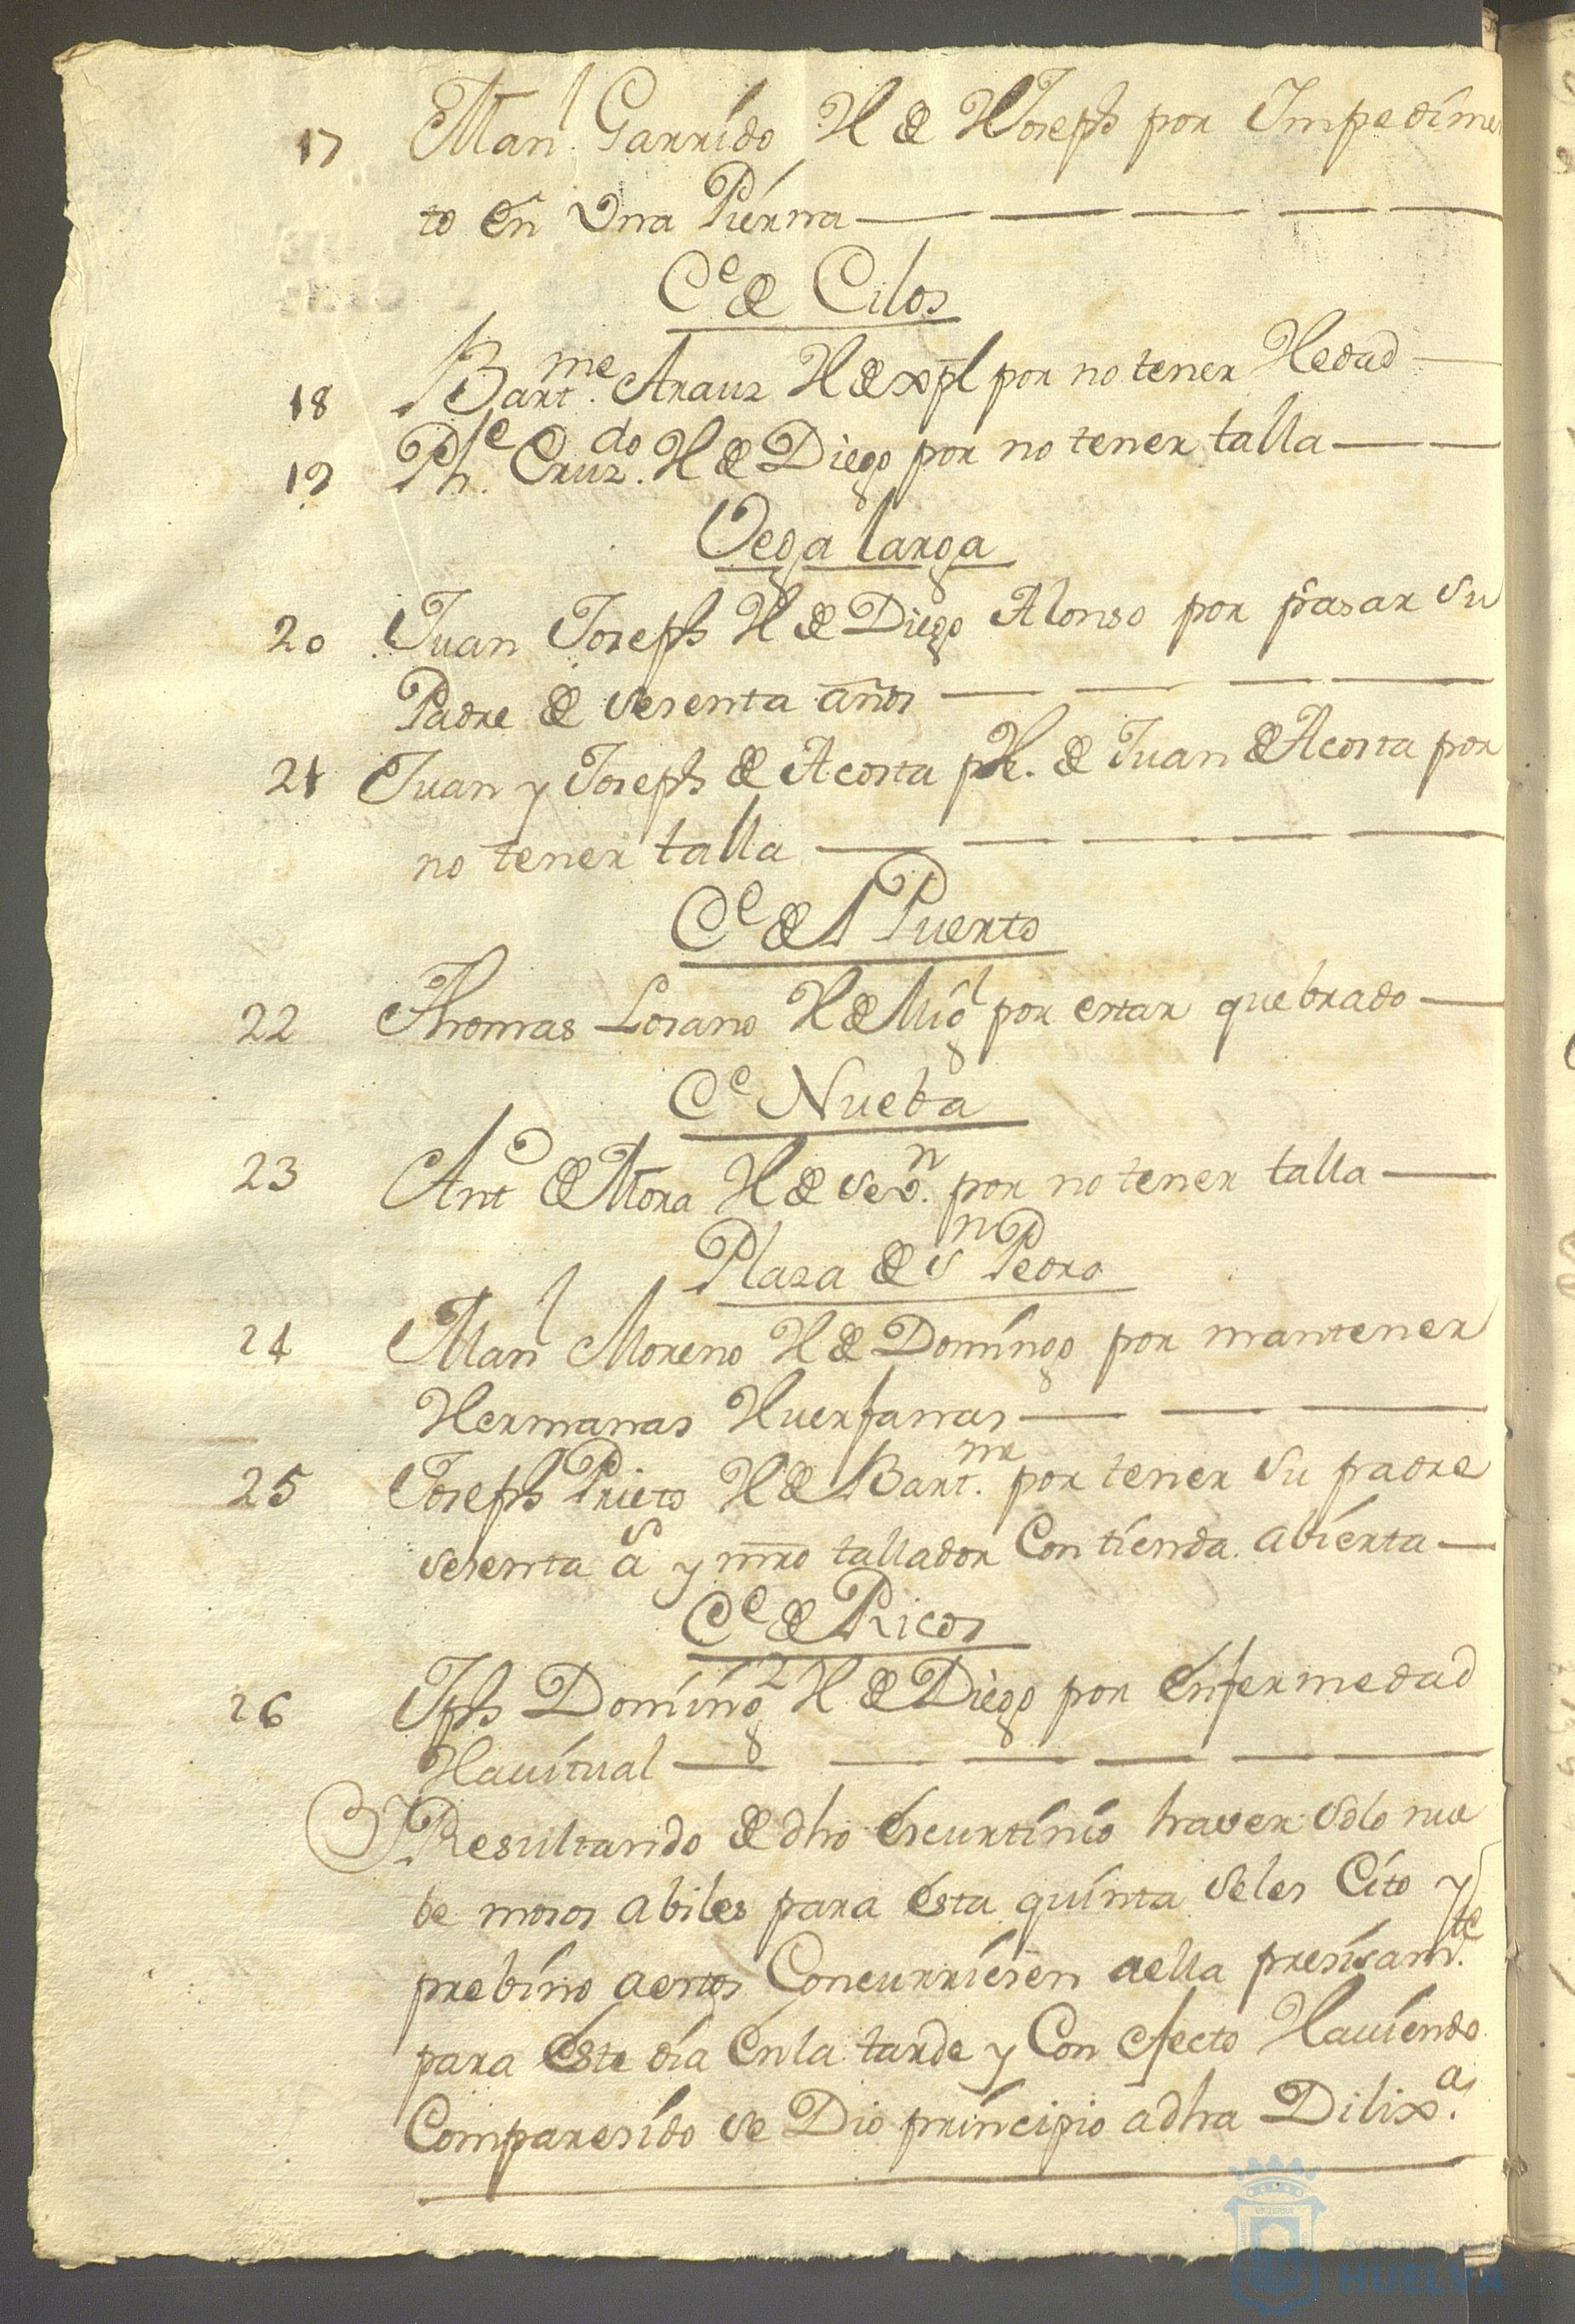 17 Man.l Garrido H de Joseph por Impedimen
to en Vna Pierna
C.e de Cilos
18 Bart.me Arauz H de xpl por no tener Hedad
19 Ph.e Cruz.do H de Diego por no tener talla
Vega larga
20 Juan Joseph H de Diego Alonso por pasar su
Padre de sesenta años
21 Juan y Joseph de Acosta H. de Juan de Acosta por
no tener talla
C.e del Puerto
22 Thomas Losano H de Mig.l por estar quebrado
C.e Nueba
23 Ant.o de Mora H de Seb.n por no tener talla
Plaza de S.n Pedro
24 Man.l Moreno H de Domingo por mantener
Hermanas Huerfanas
25 Joseph Prieto H de Bart.me por tener su padre
sesenta a.s y mro tallador Con tienda abierta
C.e de Ricos
26 Jph Doming.z H de Diego por enfermedad
Hauitual
Y Resultando de dho escurtinio haver solo nue
be mosos abiles para esta quinta seles Cito y
prebino a estos Concurriesen a ella presisam.te
para este dia en la tarde y Con efecto Hauiendo
Comparesido se Dio principio a dha Dilix.a
HUELVA